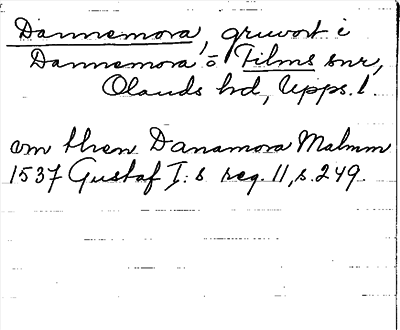 Dannemora, gruvort i
Dannemora o Films snr,
Olands hd, Upps. l.
om then Danamora Malmm
1537 Gustaf I:s reg. 11, s. 249.